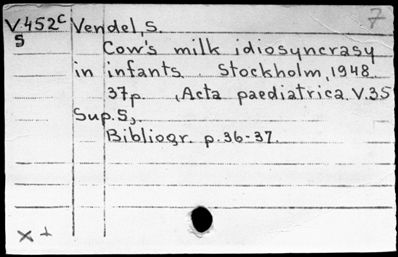 7
V.452c Vendel, S.
5 Cow's milk idiosyncrasy
in infants. Stockholm, 1948
37p. , Acta paediatrica. V.35
Sup. 5,.
Bibliogr. p. 36-37.
x